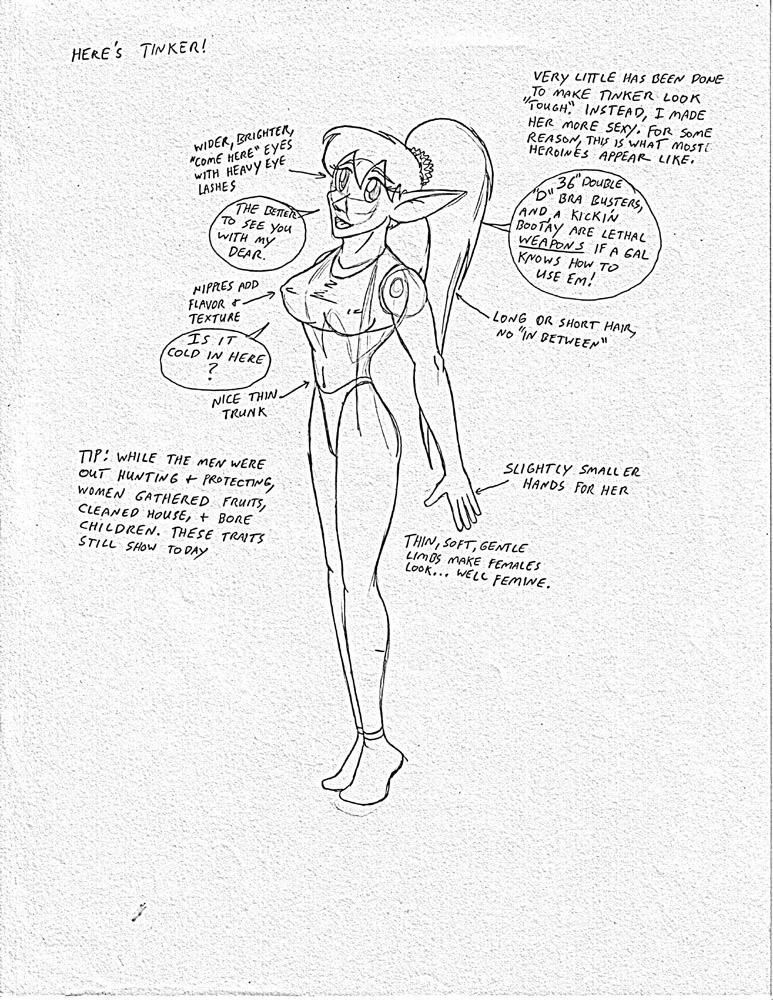 HERE'S TINKER!
VERY LITTLE HAS BEEN DONE
TO MAKE TINKER LOOK
"TOUGH." INSTEAD, I MADE
HER MORE SEXY. FOR SOME
REASON, THIS IS WHAT MOST
HEROINES APPEAR LIKE.
WIDER, BRIGHTER,
"COME HERE" EYES
WITH HEAVY EYE
LASHES
THE BETTER
TO SEE YOU
WITH MY
DEAR.
36" DOUBLE
"D" BRA BUSTERS,
AND A KICKIN
BOOTAY ARE LETHAL
WEAPONS IF A GAL
KNOWS HOW TO
USE EM!
NIPPLES ADD
FLAVOR &
TEXTURE
IS IT
COLD IN HERE
?
LONG OR SHORT HAIR,
NO "IN BETWEEN"
NICE THIN
TRUNK
TIP: WHILE THE MEN WERE
OUT HUNTING + PROTECTING,
WOMEN GATHERED FRUITS,
CLEANED HOUSE, + BORE
CHILDREN. THESE TRAITS
STILL SHOW TODAY
SLIGHTLY SMALLER
HANDS FOR HER
THIN, SOFT, GENTLE
LIMBS MAKE FEMALES
LOOK... WELL FEMINE.